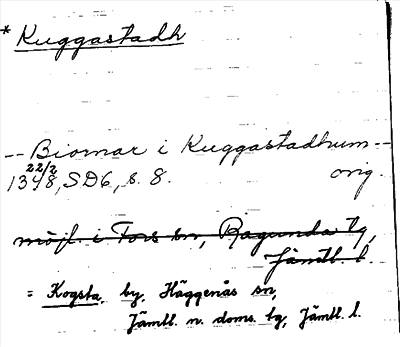 * Kuggastadh
-- Biornar i Kuggastadhum --
22/2
1348, SD6, s. 8. orig.
möjl. i Fors sn, Ragunda tg,
Jämtl. l.
= Kogsta, by, Häggenås sn,
Jämtl. n. doms. tg, Jämtl. l.